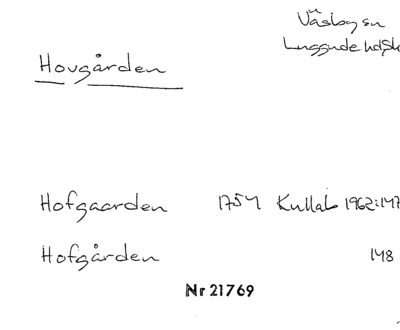 Väsby sn
Luggude hd, Sk
Hovgården
Hofgaarden 1754 Kullab 1962:147
Hofgården 148
Nr 21769